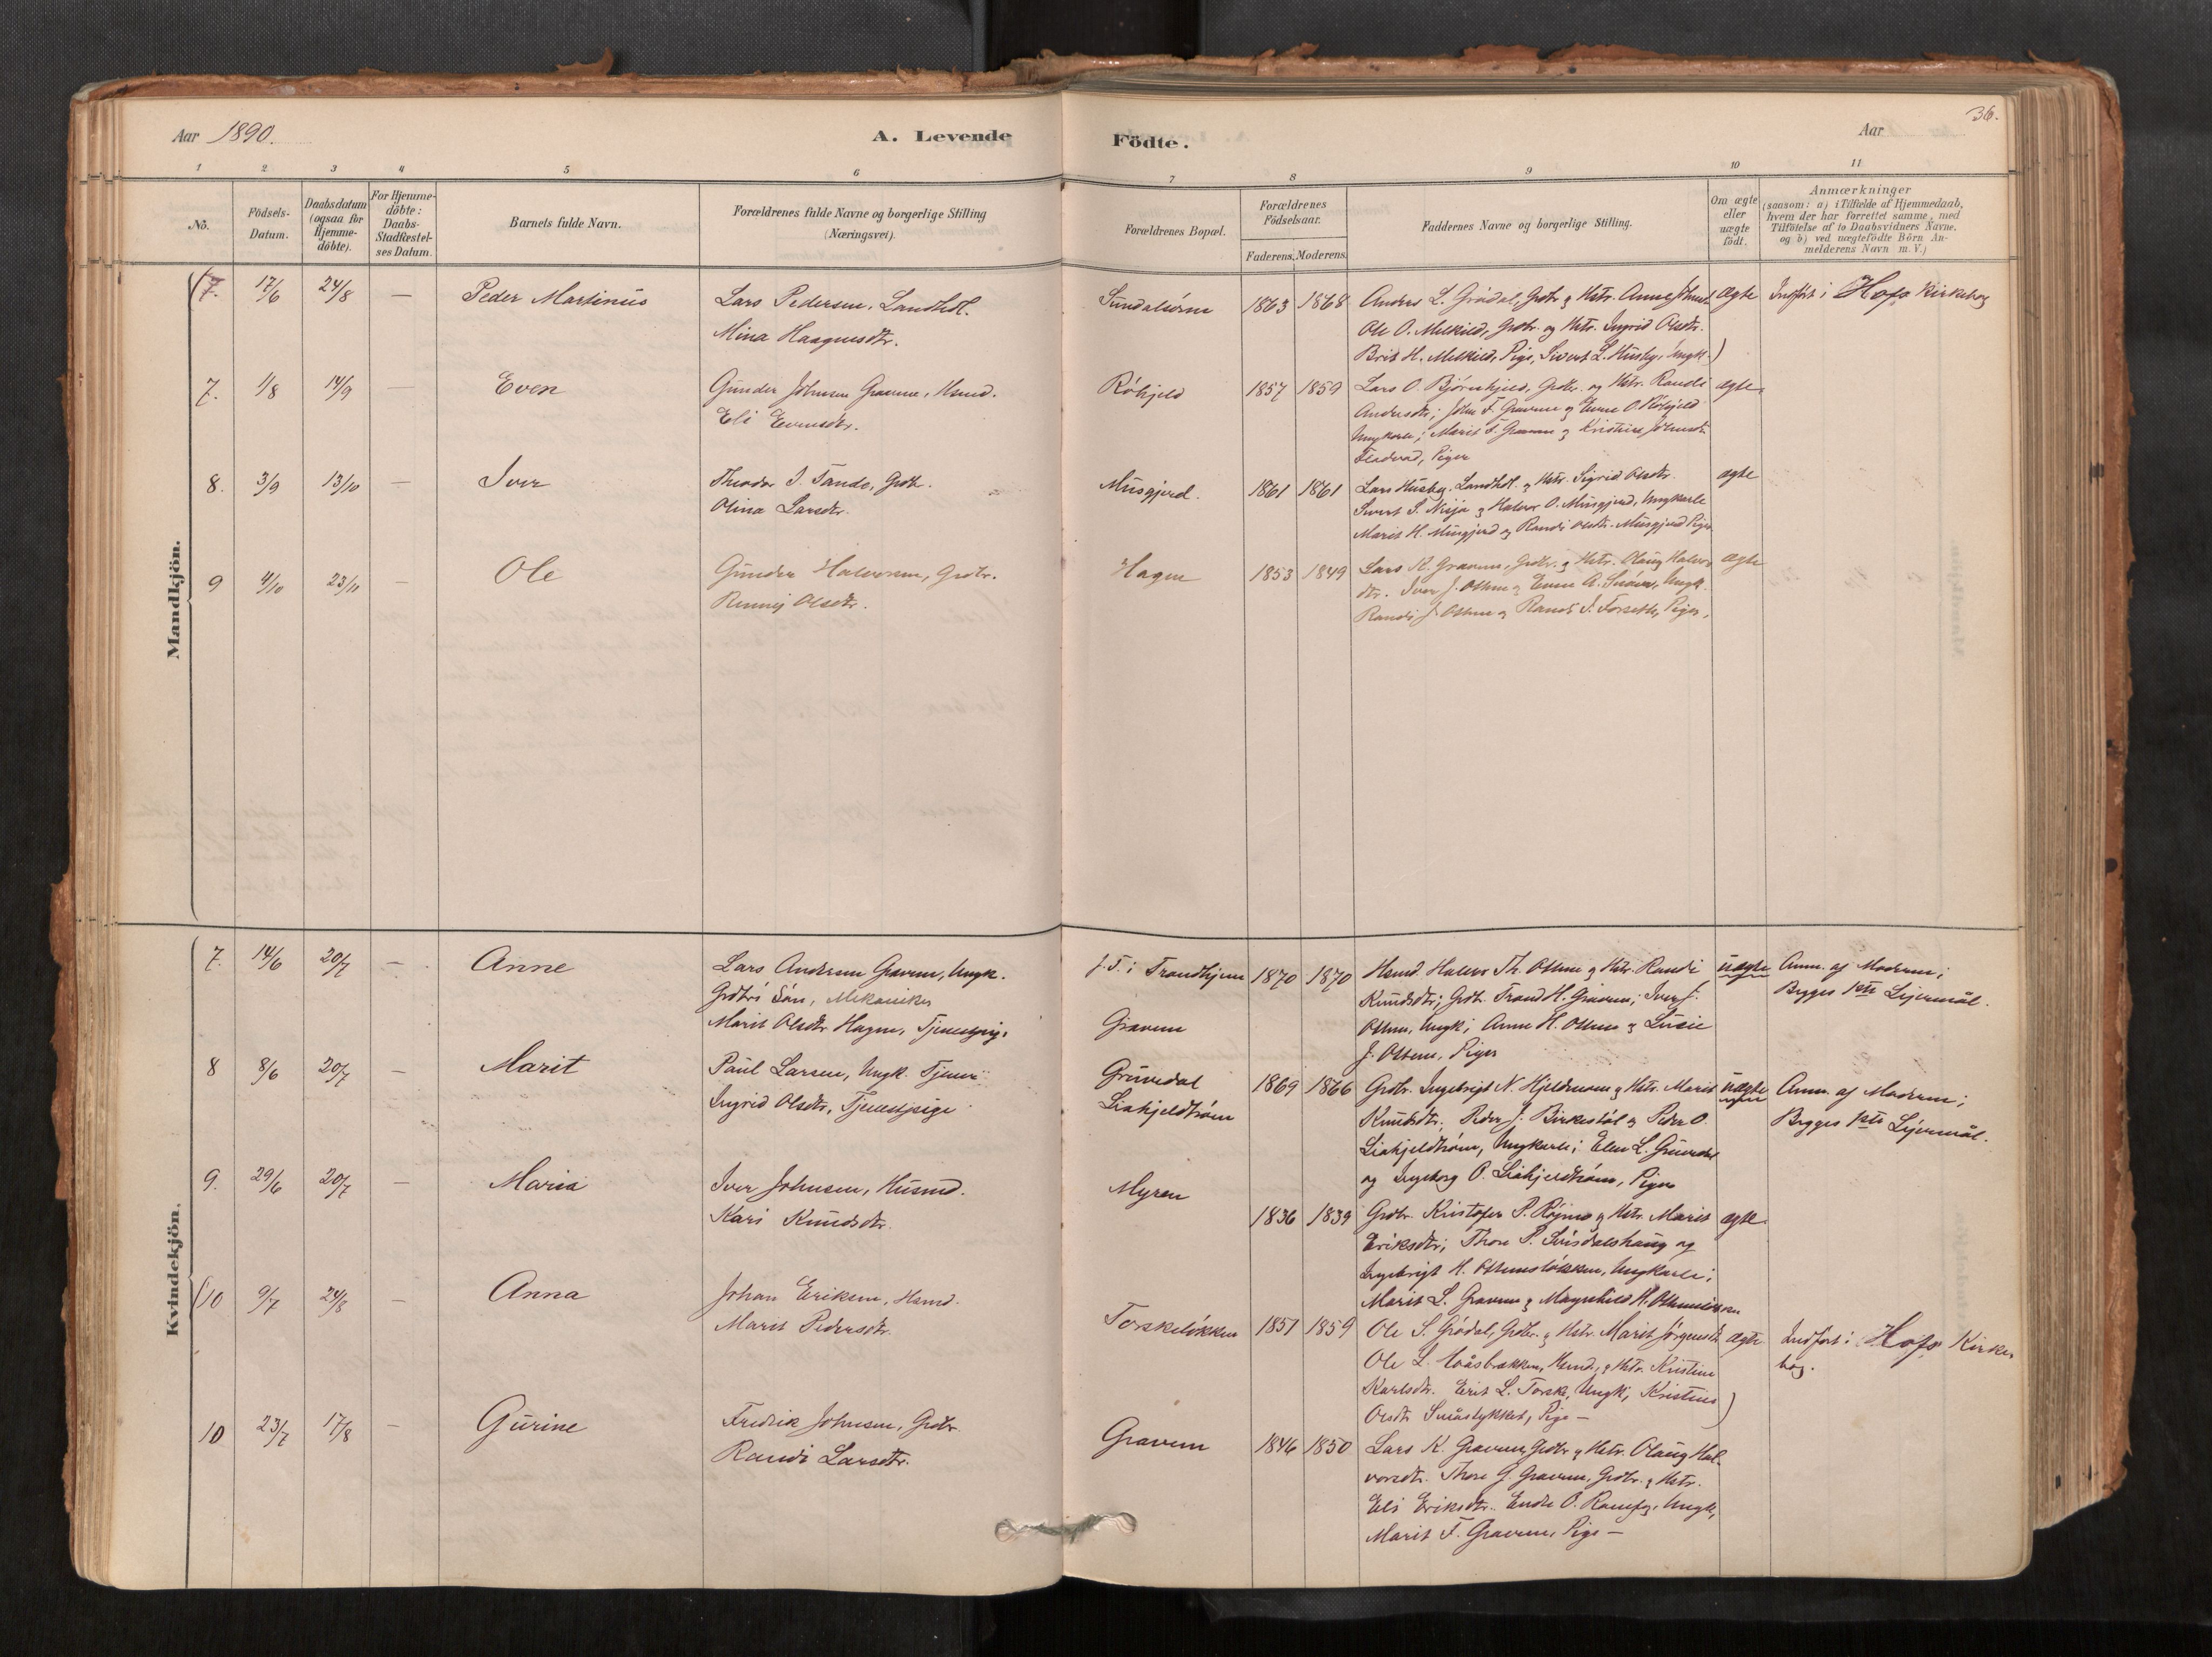 Aar 1890.
A. Levende
Födte.
Aar
36.
1 2 3 4 5 6 7 8 9 10 11
No.
Födsels-
Datum.
Daabsdatum
(ogsaa for
Hjemme-
döbte).
For Hjemme-
döbte:
Daabs-
Stadfæstel-
ses Datum.
Barnets fulde Navn.
Forældrenes fulde Navne og borgerlige Stilling
(Næringsvei).
Forældrenes Bopæl.
Forældrenes
Födselsaar.
Faderens. Moderens.
Faddernes Navne og borgerlige Stilling.
Om ægte
eller
uægte
födt.
Anmærkninger
(saasom: a) i Tilfælde af Hjemmedaab,
hvem der har forrettet samme, med
Tilföielse af to Daabsvidners Navne.
og b) ved uægtefödte Börn An-
melderens Navn m. V.)
Mandkjön.
(7. 17/6 24/8 — Peder Martinus
Lars Pedersen, Landhdl.
Mina Haagensdtr.
Sundalsøren 1863 1868
Anders L. Grødal, Gdbr. og Hstr. Anne
Ole O. Melkild, Gdbr. og Hstr. Ingrid Olsdtr.
Brit H. Melkild, Pige, Sivert L. Husby, Ungk.)
ægte
Indført i Hofs Kirkebog
7. 1/8 14/9 — Even
Gunder Johnsen Gravem, Hsmd.
Eli Evensdtr.
Röhjeld 1857 1859
Lars O. Bjørnhjeld, Gdbr. og Hstr. Randi
Andersdtr; John F. Gravem og Even O. Röhjeld
Ungkarle; Marit F. Gravem og Kristine Johnsdtr.
Piger
ægte
8. 3/9 13/10 — Iver
Theodor I. Tande, Gdbr.
Olina Larsdtr.
Musgjerd. 1861 1861
Lars Husby. Landhdl. og Hstr. Sigrid Olsdtr.
Sivert S. Nisja og Halvor O. Musgjerd, Ungkarle
Marit H. Musgjerd og Randi Olsdtr. Musgjerd Piger
ægte
9 4/10 23/11 — Ole
Gunder Halvorsen, Gdbr.
Rønnej Olsdtr.
Hagen 1853 1849
Lars K. Gravem, Gdbr. og Hstr. Olaug Halvors
dtr. Iver J. Ottem og Even A. Ungk.
Randi J. Ottem og Randi I. Forseth, Piger.
ægte
Kvindekjön.
7. 14/6 20/7 — Anne
Lars Andersen Gravem, Ungk.
Gdbrs Søn, Mekaniker
Marit Olsdtr. Hagen, Tjenestpige
f. T. i Trondhjem
Gravem
1870 1870
Hsmd. Halvor Th. Ottem og Hstr. Randi
Knudsdtr; Gdbr. Trond H. Gravem; Iver J.
Ottem, Ungk; Anne H. Ottem og Lusie
J. Ottem, Piger
uægte
Anm. af Moderen;
Begges 1ste Lejermål.
8 8/6 20/7 — Marit
Paul Larsen, Ungk. Tjener
Ingrid Olsdtr, Tjenestpige
Gruvedal
Liahjeldtrøen
1869 1866
Gdbr. Ingebrigt N. Hjeldmoen og Hstr. Marit
Knudsdtr; Peder J. Birkestøl og Peder O.
Liahjeldtrøen, Ungkarle; Elen L. Gruvedal
og Ingeborg O. Liahjeldtrøen, Piger
uægte
Anm. af Moderen;
Begges 1ste Lejermål.
9. 29/6 20/7 — Maria
Iver Johnsen, Husmd.
Kari Knudsdtr.
Myren 1836 1839
Gdbr. Kristofer P. Røjmo og Hstr. Marit
Eriksdtr; Thore P. og
Ingebrigt H. Ottemsløkken, Ungkarle;
Marit L. Gravem og Magnhild H. Ottemsløkken
ægte
(10 9/7 24/8 — Anna
Johan Eriksen, Hsmd.
Marit Pedersdtr.
Torskeløkken 1857 1859
Ole S. Grødal, Gdbr. og Hstr. Marit Jørgensdtr
Ole L. Hsmd., og Hstr. Kristine
Karlsdtr. Erik L. Torske, Ungk, Kristine
Olsdtr Småstykket, Pige —)
ægte
Indført i Hofs Kirke-
bog.
10 23/7 17/8 — Gurine
Fredrik Johnsen, Gdbr.
Randi Larsdtr.
Gravem 1846 1850
Lars K. Gravem, Gdbr og Hstr. Olaug Hal-
vorsdtr. Thore G. Gravem, Gdbr. og Hstr.
Eli Eriksdtr. Endre O. Ungk,
Marit F. Gravem, Pige —